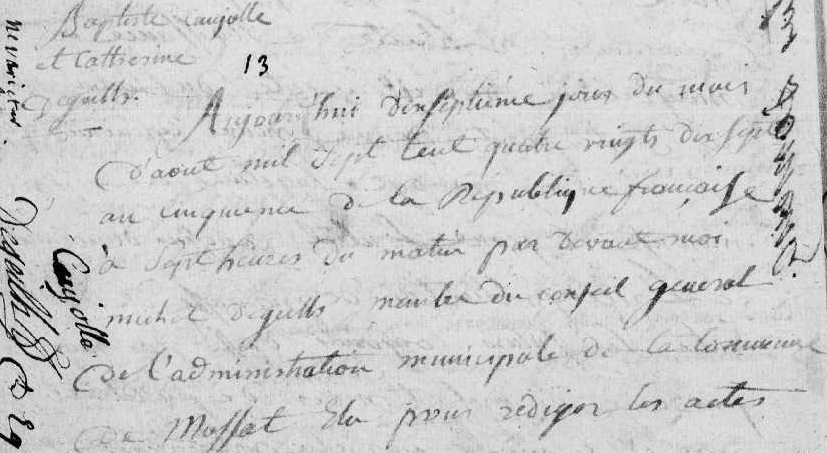 Baptiste Caujolle
et Catherine
Deguilh.
13
Aujourd'hui dixseptieme jour du mois
d'aout mil sept cent quatre vingts dix sept
an cinquieme de la République française
à sept heures du matin par devant moi
michel Deguilh membre du conseil general
de l'administration municipale de la Commune
de Massat Elu pour rediger les actes
Caujolle
Deguilh